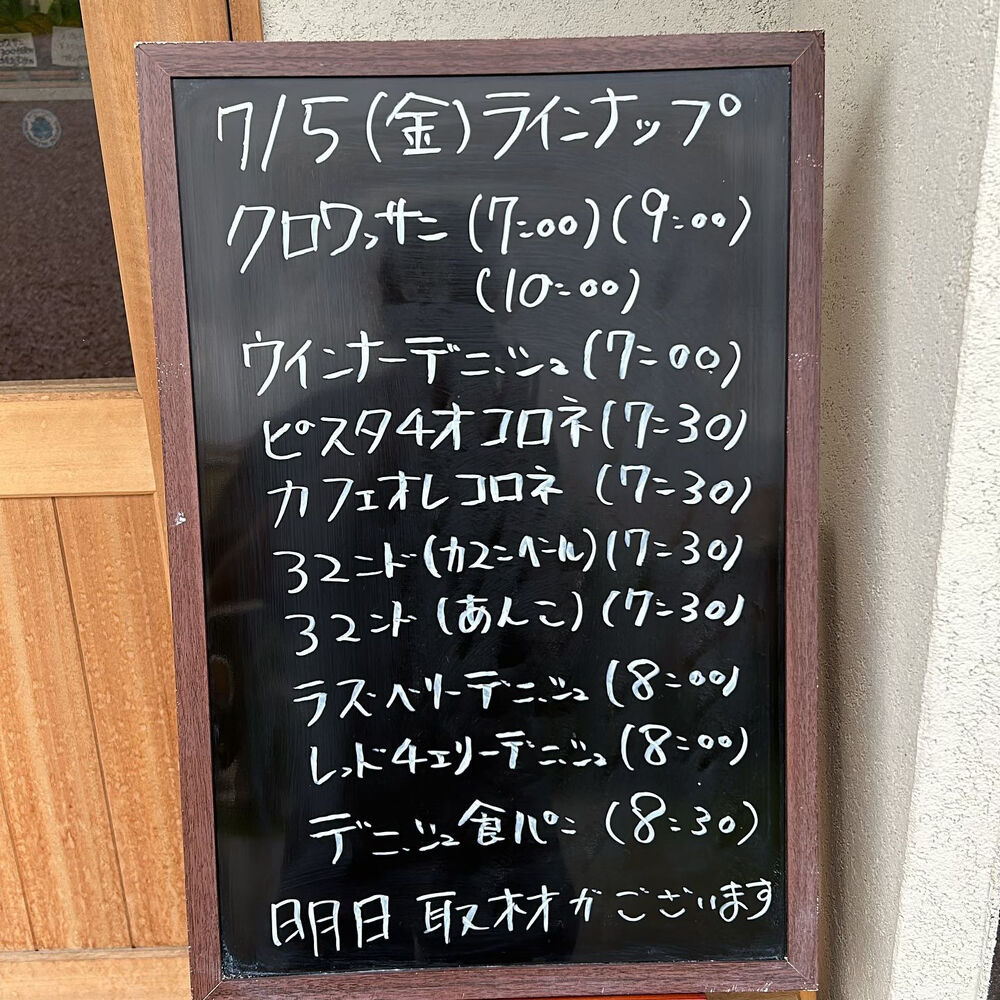 7/5(金)ラインナップ
クロワッサン(7:00)(9:00)
(10:00)
ウインナーデニッシュ(7:00)
ピスタチオコロネ(7:30)
カフェオレコロネ(7:30)
ミマンド(カマンベール)(7:30)
ミマンド(あんこ)(7:30)
ラズベリーデニッシュ(8:00)
レッドチェリーデニッシュ(8:00)
デニッシュ食パン(8:30)
明日取材がございます